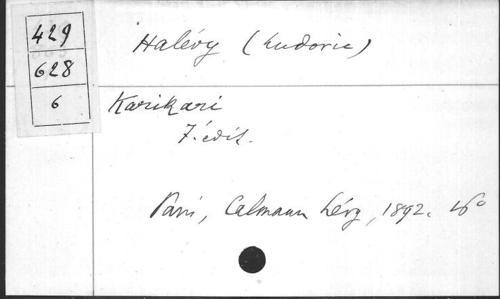 429
628
6
Halévy (Ludovic)
Karikari
7. édit.
Paris, Calmann Lévy, 1892. 16°